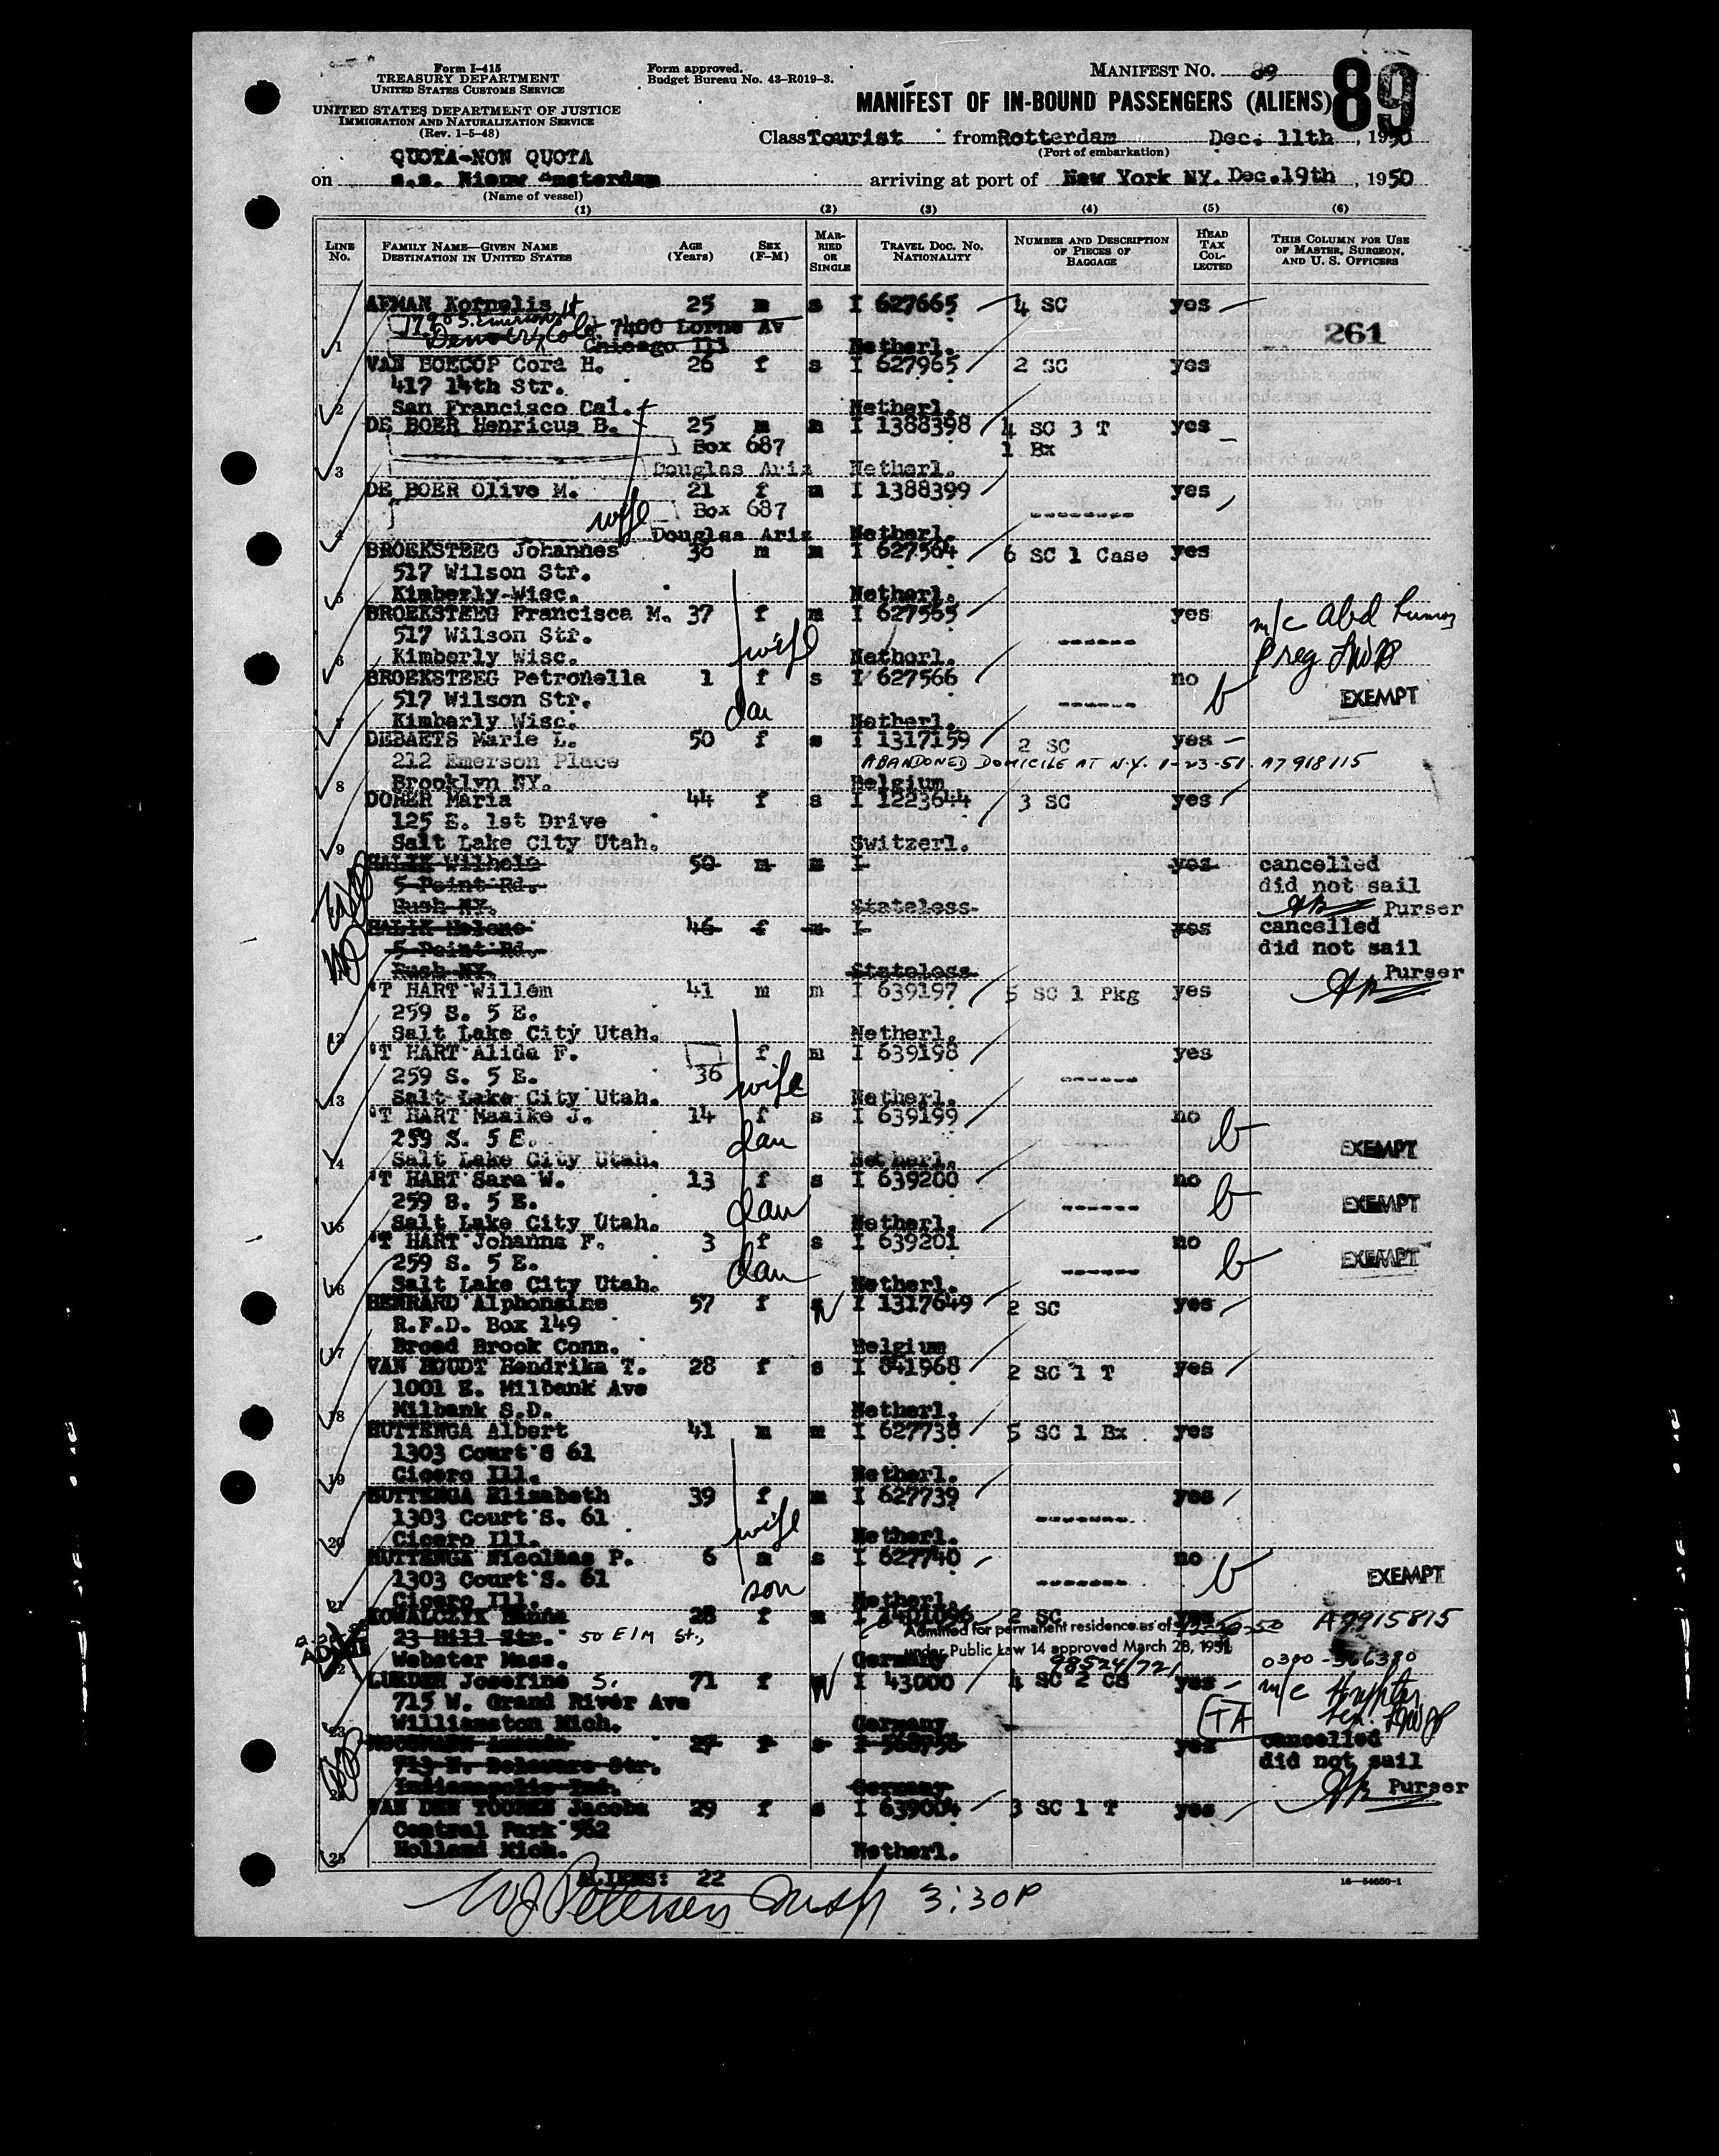 Form I-415
TREASURY DEPARTMENT
UNITED STATES CUSTOMS SERVICE
UNITED STATES DEPARTMENT OF JUSTICE
IMMIGRATION AND NATURALIZATION SERVICE
(Rev. 1-5-48)
Form approved.
Budget Bureau No. 43-R019-3.
MANIFEST NO. 89
89
MANIFEST OF IN-BOUND PASSENGERS (ALIENS)
Class Tourist from Rotterdam Dec. 11th, 1950
(Port of embarkation)
QUOTA-NON QUOTA
on s.s. Nieuw Amsterdam arriving at port of New York NY. Dec.19th, 1950
(Name of vessel)
(1) (2) (3) (4) (5) (6)
LINE NO. FAMILY NAME—GIVEN NAME DESTINATION IN UNITED STATES AGE (Years) SEX (F-M) MARRIED OR SINGLE TRAVEL DOC. NO. NATIONALITY NUMBER AND DESCRIPTION OF PIECES OF BAGGAGE HEAD TAX COLLECTED THIS COLUMN FOR USE OF MASTER, SURGEON, AND U. S. OFFICERS
AFMAN Kornelis 25 m s I 627665 4 SC yes
7400 Lorne Av
261
1 Chicago Ill Netherl.
VAN BOECOP Cora H. 26 f s I 627965 2 SC yes
417 14th Str.
2 San Francisco Cal. Netherl.
DE BOER Henricus B. 25 m m I 1388398 4 SC 3 T yes
Box 687 1 Bx
3 Douglas Ariz Netherl.
DE BOER Olive M. 21 f m I 1388399 yes
wife Box 687 --------
4 Douglas Ariz Netherl.
BROEKSTEEG Johannes 36 m m I 627564 6 SC 1 Case yes
517 Wilson Str.
5 Kimberly-Wisc. Netherl.
BROEKSTEEG Francisca M. 37 f m I 627565 yes m/c Abd
517 Wilson Str. wife ------
6 Kimberly Wisc. Netherl. Preg
BROEKSTEEG Petronella 1 f s I 627566 no
517 Wilson Str. dau ------ b EXEMPT
7 Kimberly Wisc. Netherl.
DEBAETS Marie L. 50 f s I 1317159 2 SC yes
212 Emerson Place ABANDONED DOMICILE AT N.Y. 1-23-51. A7918115
8 Brooklyn NY. Belgium
DORER Maria 44 f s I 1223644 3 SC yes
125 E. 1st Drive
9 Salt Lake City Utah. Switzerl.
HALIK Wilhelm 50 m m I yes cancelled
5 Point Rd. did not sail
Rush NY. Stateless Purser
HALIK Helene 46 f m I yes cancelled
5 Point Rd. did not sail
Rush NY. Stateless Purser
'T HART Willem 41 m m I 639197 5 SC 1 Pkg yes
259 S. 5 E.
12 Salt Lake City Utah. Netherl.
'T HART Alida F. f m I 639198 yes
259 S. 5 E. 36 wife ------
13 Salt Lake City Utah. Netherl.
'T HART Maaike J. 14 f s I 639199 no
259 S. 5 E. dau b EXEMPT
14 Salt Lake City Utah. Netherl.
'T HART Sara W. 13 f s I 639200 no
259 S. 5 E. dau ------ b EXEMPT
15 Salt Lake City Utah. Netherl.
'T HART Johanna F. 3 f s I 639201 no
259 S. 5 E. dau ------ b EXEMPT
16 Salt Lake City Utah. Netherl.
HENRARD Alphonsine 57 f W I 1317649 2 SC yes
R.F.D. Box 149
17 Broad Brook Conn. Belgium
VAN HOUDT Hendrika T. 28 f s I 841968 2 SC 1 T yes
1001 E. Milbank Ave
18 Milbank S.D. Netherl.
HUTTENGA Albert 41 m m I 627738 5 SC 1 Bx yes
1303 Court'S 61
19 Cicero Ill. Netherl.
HUTTENGA Elisabeth 39 f m I 627739 yes
1303 Court'S. 61 wife -------
20 Cicero Ill. Netherl.
HUTTENGA Nicolaas P. 6 m s I 627740 no
1303 Court'S. 61 son ------- b EXEMPT
21 Cicero Ill. Netherl.
KOWALCZYK Hanna 28 f I 2 SC yes A7915815
23 Hill Str. 50 Elm St., Admitted for permanent residence as of
under Public Law 14 approved March 28, 1951
22 Webster Mass. Germany 98524/721 0300-366380
LUEDER Josefine S. 71 f W I 43000 4 SC 2 CS yes m/c
715 W. Grand River Ave TA
23 Williamston Mich. Germany
27 f s yes cancelled
713 N. Delaware Str. did not sail
Indianapolis Ind. Germany Purser
VAN DEN TOOREN Jacoba 29 f s I 639004 3 SC 1 T yes
Central Park 562
25 Holland Mich. Netherl.
ALIENS: 22
WJ Petersen Insp 3:30P
16—54650-1